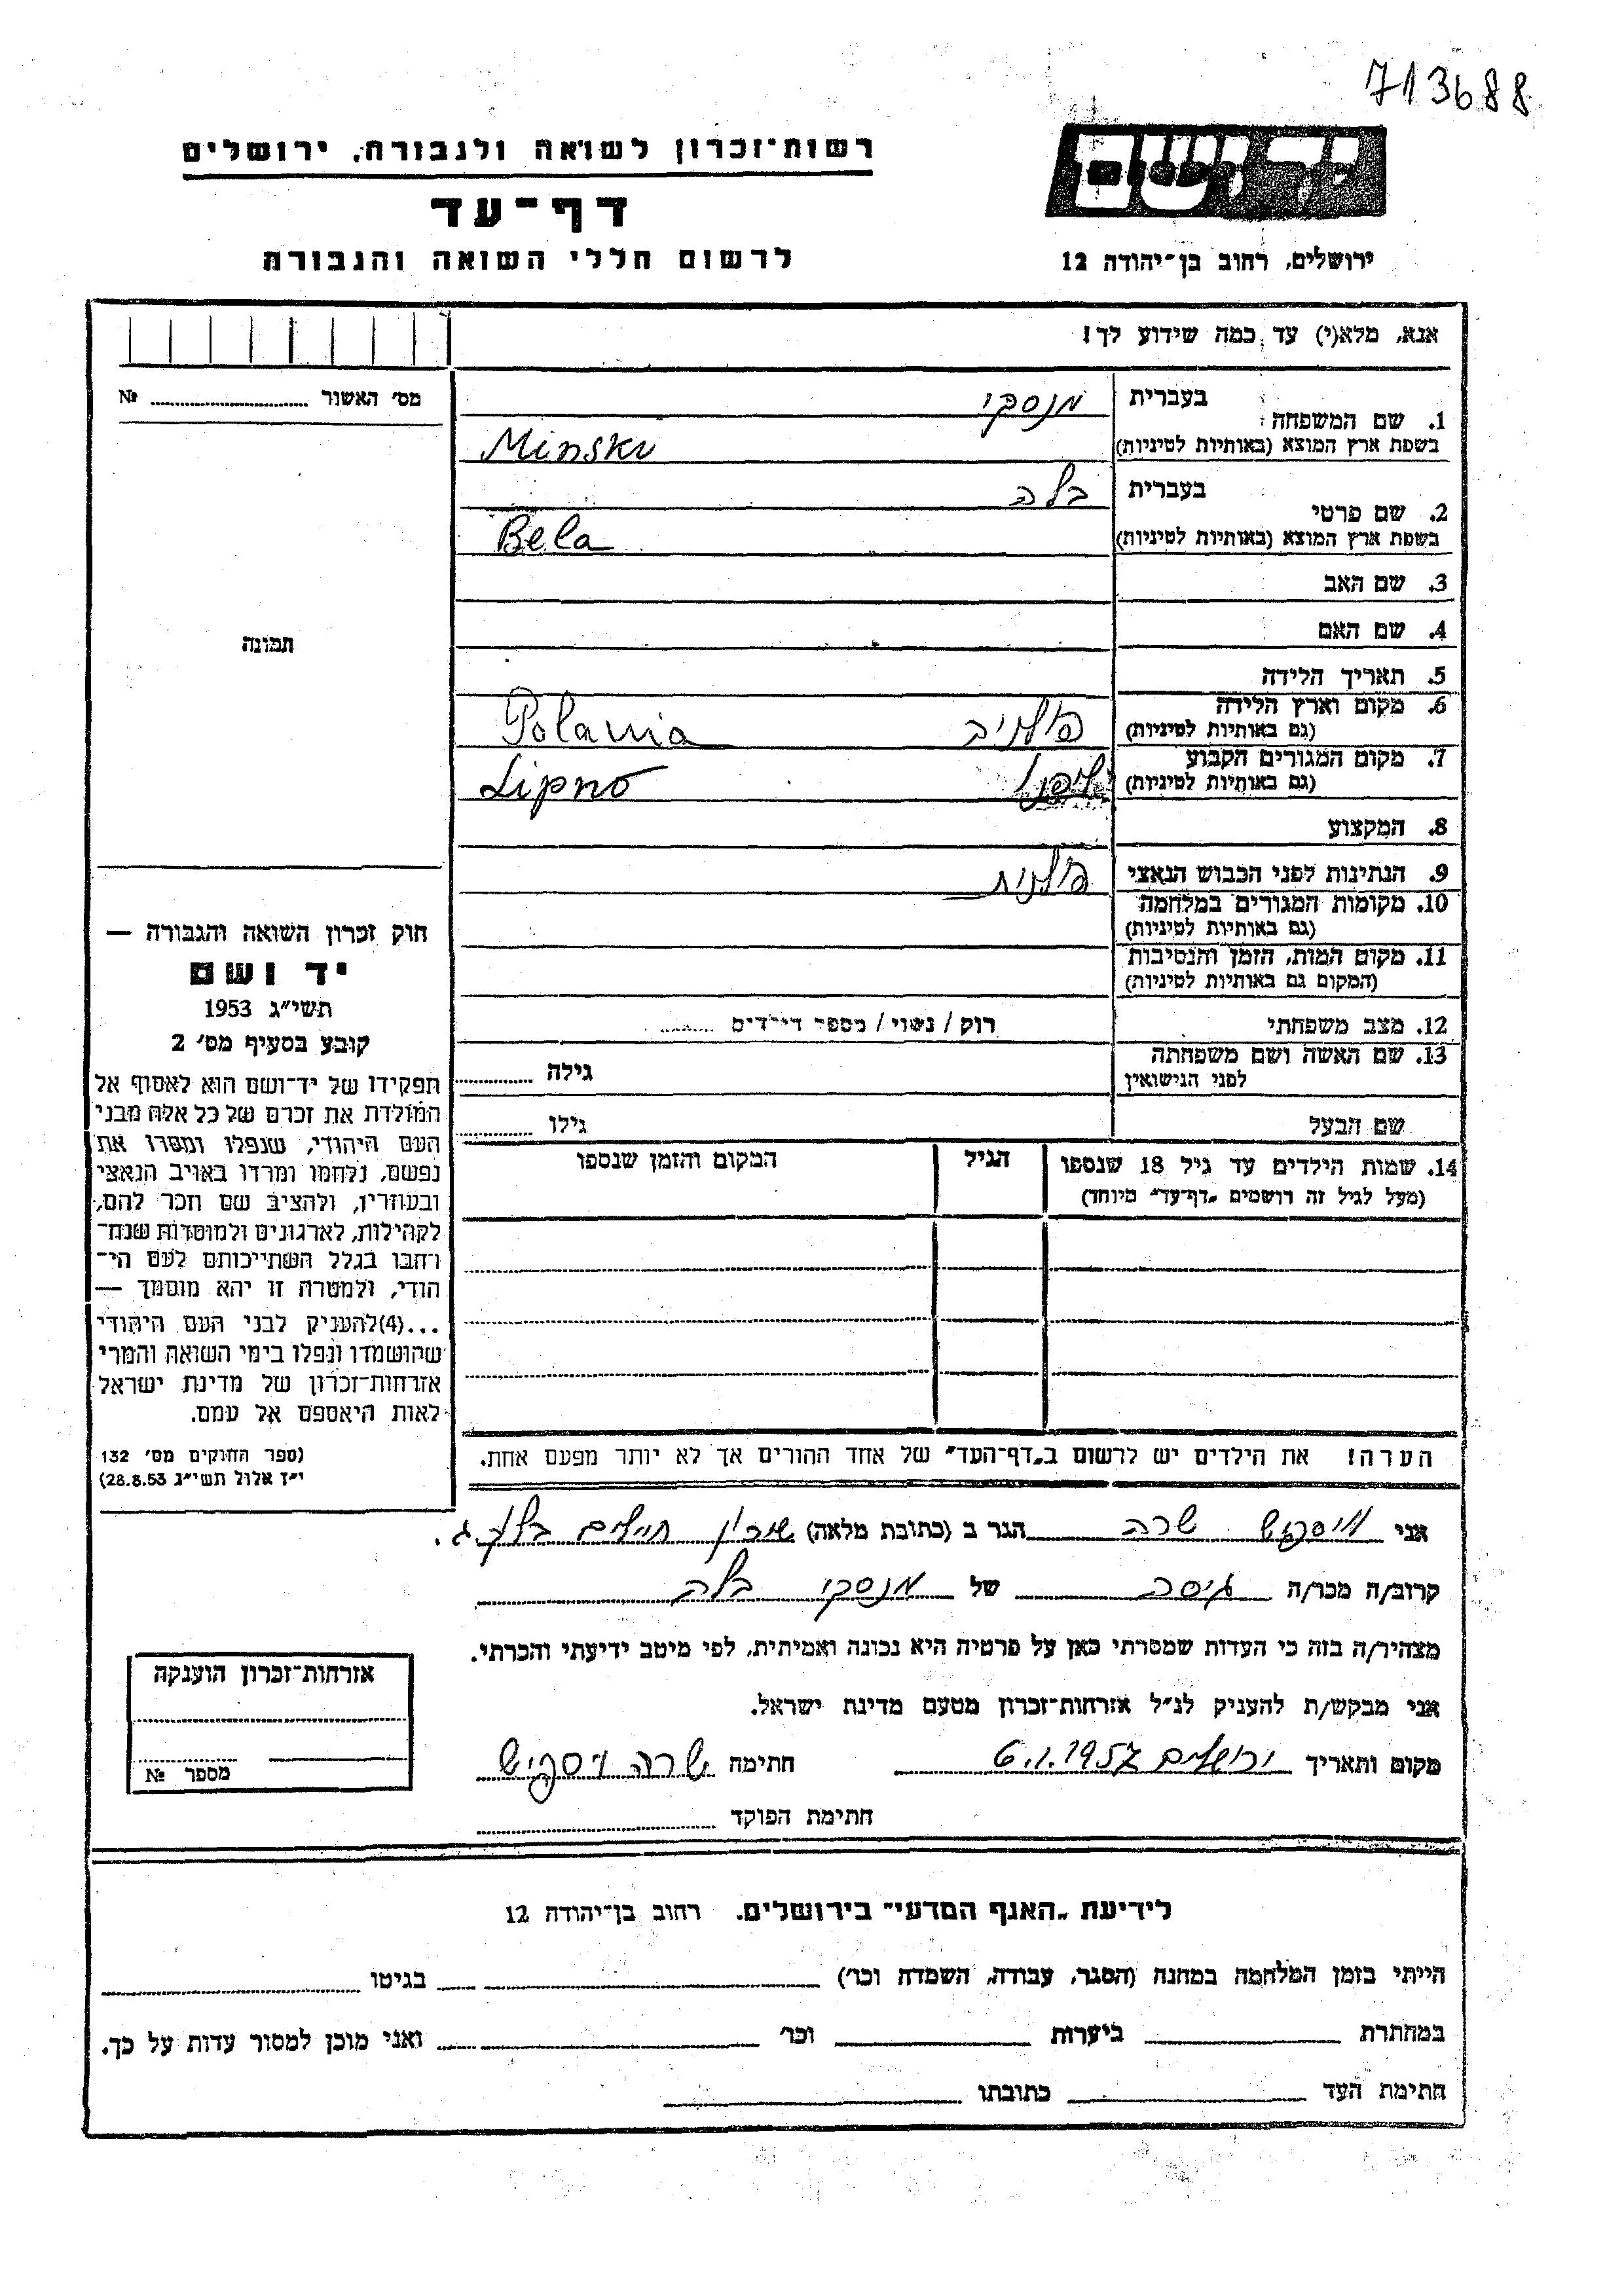 713688
יד ושם
רשות־זכרון לשואה ולגבורה, ירושלים
דף־עד
לרשום חללי השואה והגבורה
ירושלים, רחוב בן־יהודה 12
אנא, מלא(י) עד כמה שידוע לך!
מס׳ האשור ........ №
תמונה
חוק זכרון השואה והגבורה —
יד ושם
תשי״ג 1953
קובע בסעיף מס׳ 2
תפקידו של יד־ושם הוא לאסוף אל
המולדת את זכרם של כל אלה מבני
העם היהודי, שנפלו ומסרו את
נפשם, נלחמו ומרדו באויב הנאצי
ובעוזריו, ולהציב שם וזכר להם,
לקהילות, לארגונים ולמוסדות שנח־
רחבו בגלל השתייכותם לעם הי־
הודי, ולמטרה זו יהא מוסמך —
...(4)להעניק לבני העם היהודי
שהושמדו ונפלו בימי השואה והמרי
אזרחות־זכרון של מדינת ישראל
לאות היאספם אל עמם.
(ספר החוקים מס׳ 132
י״ז אלול תשי״ג 28.8.53)
1. שם המשפחה בעברית מנסקי
בשפת ארץ המוצא (באותיות לטיניות) Minski
2. שם פרטי בעברית בלה
בשפת ארץ המוצא (באותיות לטיניות) Bela
3. שם האב
4. שם האם
5. תאריך הלידה
6. מקום וארץ הלידה
(גם באותיות לטיניות) פולניה Polania
7. מקום המגורים הקבוע
(גם באותיות לטיניות) ליפנו Lipno
8. המקצוע
9. הנתינות לפני הכבוש הנאצי פולנית
10. מקומות המגורים במלחמה
(גם באותיות לטיניות)
11. מקום המות, הזמן והנסיבות
(המקום גם באותיות לטיניות)
12. מצב משפחתי רוק / נשוי / מספר הילדים ........
13. שם האשה ושם משפחתה
לפני הנישואין גילה ........
שם הבעל גילו ........
14. שמות הילדים עד גיל 18 שנספו
(מעל לגיל זה רושמים „דף־עד״ מיוחד)
הגיל
המקום והזמן שנספו
הערה! את הילדים יש לרשום ב„דף־העד״ של אחד ההורים אך לא יותר מפעם אחת.
אני שרה הגר ב (כתובת מלאה) שיכון חיילים
קרוב/ה מכר/ה גיסה של מנסקי בלה
מצהיר/ה בזה כי העדות שמסרתי כאן על פרטיה היא נכונה ואמיתית, לפי מיטב ידיעתי והכרתי.
אני מבקש/ת להעניק לנ״ל אזרחות־זכרון מטעם מדינת ישראל.
מקום ותאריך ירושלים 6.1.1957 חתימה שרה
חתימת הפוקד
אזרחות־זכרון הוענקה
מספר №
לידיעת „האגף המדעי״ בירושלים. רחוב בן־יהודה 12
הייתי בזמן המלחמה במחנה (הסגר, עבודה, השמדה וכו׳) בגיטו
במחתרת ביערות וכו׳ ואני מוכן למסור עדות על כך.
חתימת העד כתובתו